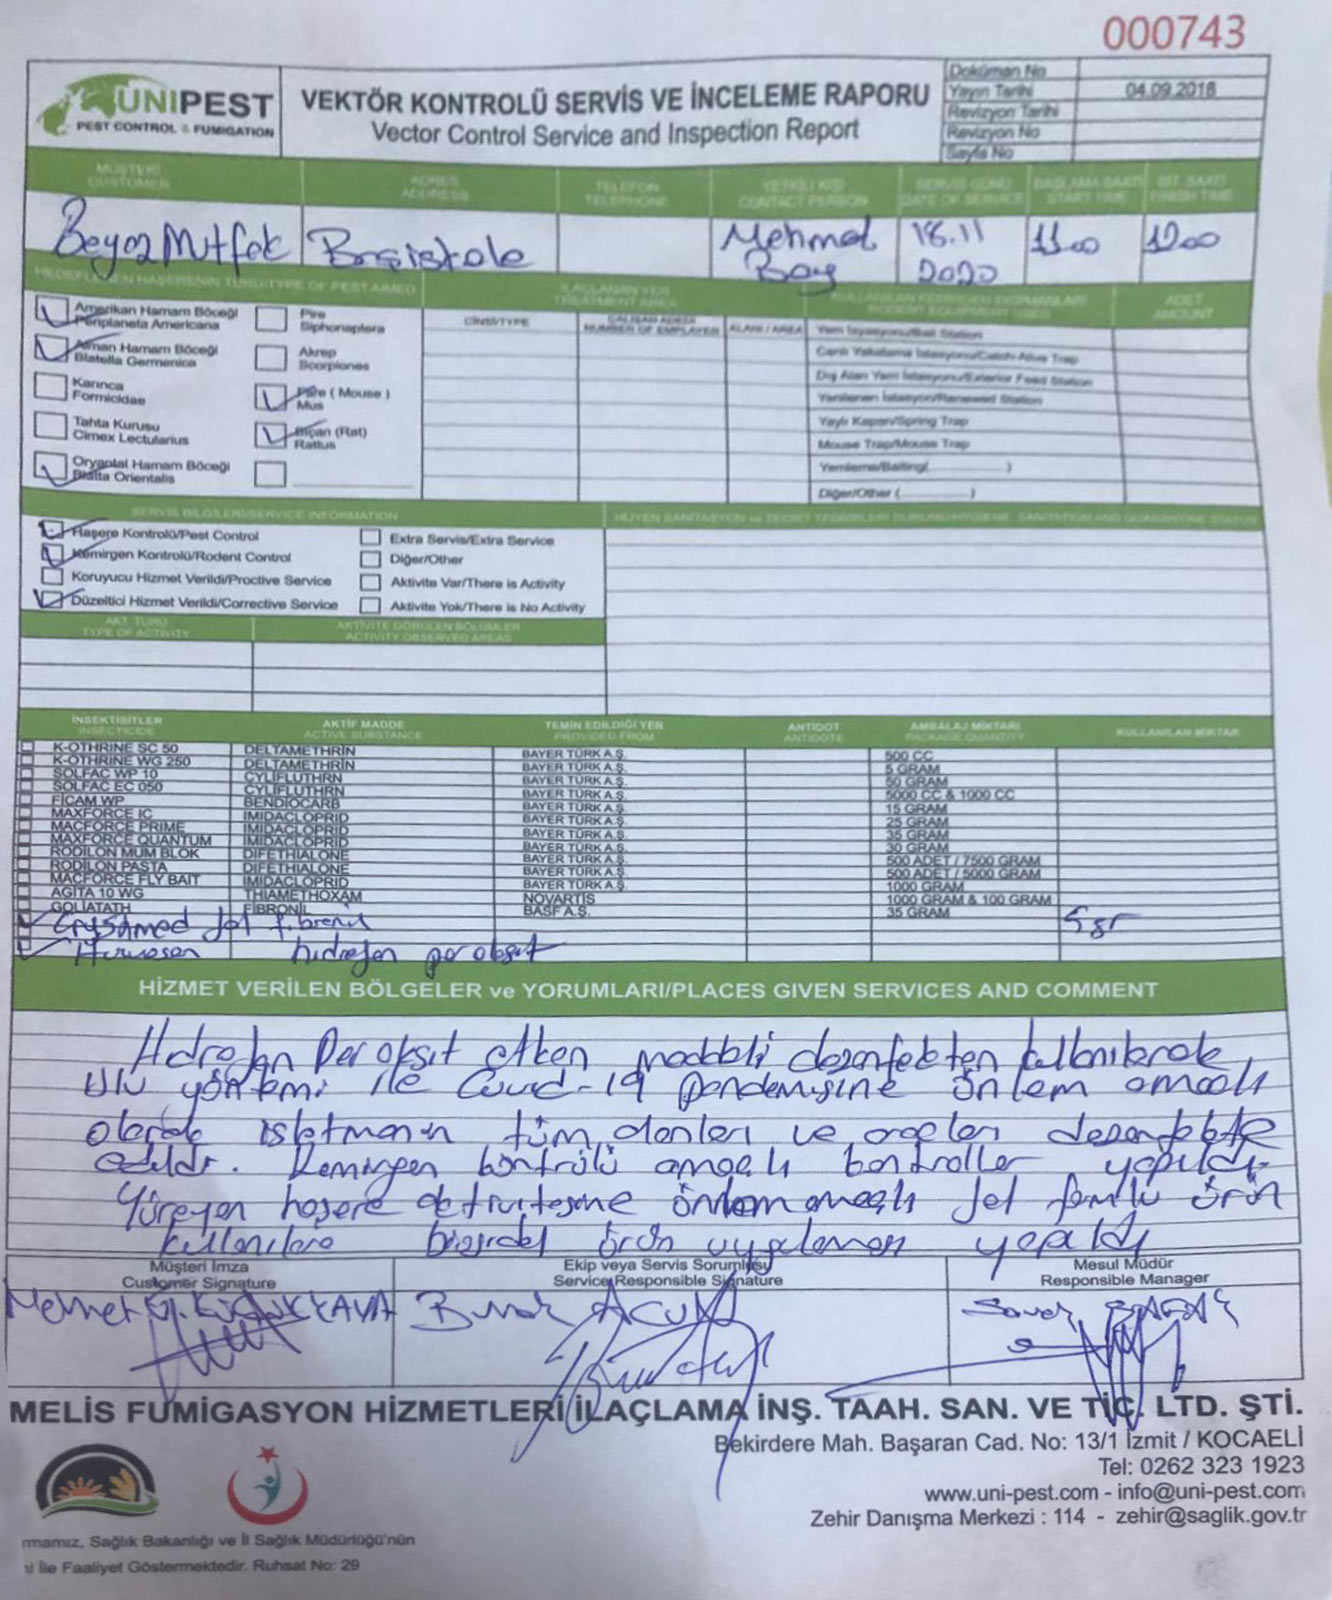 000743
UNIPEST
PEST CONTROL & FUMIGATION
VEKTÖR KONTROLÜ SERVİS VE İNCELEME RAPORU
Vector Control Service and Inspection Report
Doküman No
Yayın Tarihi 04.09.2018
Revizyon Tarihi
Revizyon No
Sayfa No
MÜŞTERİ ADRES TELEFON YETKİLİ KİŞİ SERVİS GÜNÜ BAŞLAMA SAATİ BİT. SAATİ
CUSTOMER ADDRESS TELEPHONE CONTACT PERSON DATE OF SERVICE START TIME FINISH TIME
Beyaz Mutfak Başiskele Mehmet Bay 18.11 2020 11:00 12:00
HEDEFLENEN HAŞERENİN TÜRÜ/TYPE OF PEST AIMED
Amerikan Hamam Böceği
Periplaneta Americana
Alman Hamam Böceği
Blatella Germenica
Karınca
Formicidae
Tahta Kurusu
Cimex Lectularius
Oryantal Hamam Böceği
Blatta Orientalis
Pire
Siphonaptera
Akrep
Scorpiones
Fare ( Mouse )
Mus
Sıçan (Rat)
Rattus
İLAÇLANAN YER
TREATMENT AREA
CİNSİ/TYPE
ÇALIŞAN ADEDİ
NUMBER OF EMPLOYER
ALANI / AREA
KULLANILAN KEMİRGEN EKİPMANLARI
RODENT EQUIPMENT USED
ADET
AMOUNT
Yem İstasyonu/Bait Station
Canlı Yakalama İstasyonu/Catch-Alive Trap
Dış Alan Yem İstasyonu/Exterior Feed Station
Yenilenen İstasyon/Renewed Station
Yaylı Kapan/Spring Trap
Mouse Trap/Mouse Trap
Yemleme/Baiting( )
Diğer/Other ( )
SERVİS BİLGİLERİ/SERVICE INFORMATION
Haşere Kontrolü/Pest Control
Kemirgen Kontrolü/Rodent Control
Koruyucu Hizmet Verildi/Proctive Service
Düzeltici Hizmet Verildi/Corrective Service
Extra Servis/Extra Service
Diğer/Other
Aktivite Var/There is Activity
Aktivite Yok/There is No Activity
AKT. TÜRÜ
TYPE OF ACTIVITY
AKTİVİTE GÖRÜLEN BÖLÜMLER
ACTIVITY OBSERVED AREAS
İNSEKTİSİTLER AKTİF MADDE TEMİN EDİLDİĞİ YER ANTİDOT AMBALAJ MİKTARI KULLANILAN MİKTAR
INSECTICIDE ACTIVE SUBSTANCE PROVIDED FROM ANTIDOTE PACKAGE QUANTITY
K-OTHRINE SC 50 DELTAMETHRİN BAYER TÜRK A.Ş. 500 CC
K-OTHRINE WG 250 DELTAMETHRİN BAYER TÜRK A.Ş. 5 GRAM
SOLFAC WP 10 CYLIFLUTHRN BAYER TÜRK A.Ş. 50 GRAM
SOLFAC EC 050 CYLIFLUTHRN BAYER TÜRK A.Ş. 5000 CC & 1000 CC
FİCAM WP BENDIOCARB BAYER TÜRK A.Ş. 15 GRAM
MAXFORCE IC IMIDACLOPRID BAYER TÜRK A.Ş. 25 GRAM
MACFORCE PRIME IMIDACLOPRID BAYER TÜRK A.Ş. 35 GRAM
MAXFORCE QUANTUM IMIDACLOPRID BAYER TÜRK A.Ş. 30 GRAM
RODILON MUM BLOK DIFETHIALONE BAYER TÜRK A.Ş. 500 ADET / 7500 GRAM
RODILON PASTA DIFETHIALONE BAYER TÜRK A.Ş. 500 ADET / 5000 GRAM
MACFORCE FLY BAIT IMIDACLOPRID BAYER TÜRK A.Ş. 1000 GRAM
AGITA 10 WG THIAMETHOXAM NOVARTİS 1000 GRAM & 100 GRAM
GOLIATATH FİBRONİL BASF A.Ş. 35 GRAM
Jel fibronil 5 gr
hidrojen peroksit
HİZMET VERİLEN BÖLGELER ve YORUMLARI/PLACES GIVEN SERVICES AND COMMENT
Hidrojen Peroksit etken maddeli dezenfektan kullanılarak
ULV yöntemi ile Covid-19 pandemisine önlem amaçlı
olarak işletmenin tüm alanları ve araçları dezenfekte
edildi. Kemirgen kontrolü amaçlı kontroller yapıldı.
Yürüyen haşere aktivitesine önlem amaçlı Jel formlu ürün
kullanılara biyosidal ürün uygulaması yapıldı
Müşteri İmza
Customer Signature
Ekip veya Servis Sorumlusu
Service Responsible Signature
Mesul Müdür
Responsible Manager
MELİS FUMİGASYON HİZMETLERİ İLAÇLAMA İNŞ. TAAH. SAN. VE TİC. LTD. ŞTİ.
Bekirdere Mah. Başaran Cad. No: 13/1 İzmit / KOCAELİ
Tel: 0262 323 1923
www.uni-pest.com - info@uni-pest.com
Zehir Danışma Merkezi : 114 - zehir@saglik.gov.tr
rmamız, Sağlık Bakanlığı ve İl Sağlık Müdürlüğü'nün
ni İle Faaliyet Göstermektedir. Ruhsat No: 29